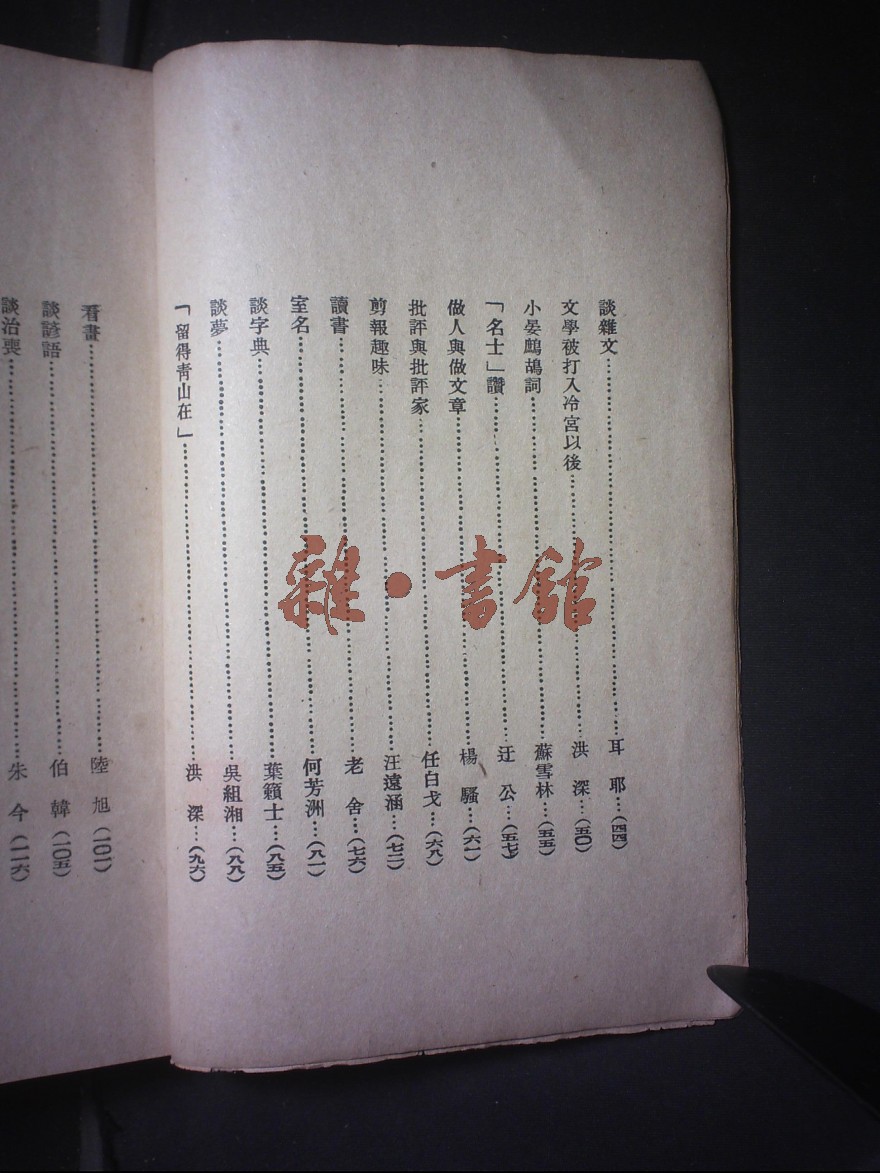 談雜文………耳耶…(四四)
文學被打入冷宮以後………洪深…(五〇)
小晏鷓鴣詞………蘇雪林…(五五)
「名士」讚………迂公…(五七)
做人與做文章………楊騷…(六一)
批評與批評家………任白戈…(六八)
剪報趣味………汪遠涵…(七二)
讀書………老舍…(七六)
室名………何芳洲…(八一)
談字典………葉籟士…(八五)
談夢………吳組湘…(八八)
「留得青山在」………洪深…(九六)
看畫………陸旭(一〇一)
談諺語………伯韓(一〇五)
談治喪………朱今(一一六)
雜·書館